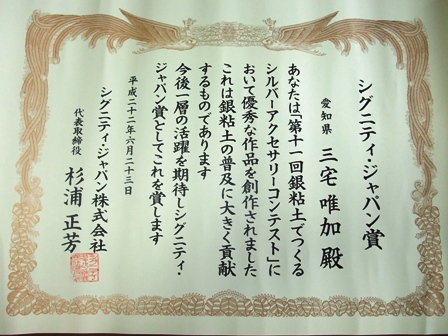 シグニティ・ジャパン賞
愛知県 三宅唯加殿
あなたは「第十一回銀粘土でつくる
シルバーアクセサリーコンテスト」に
おいて優秀な作品を創作されました
これは銀粘土の普及に大きく貢献
するものであります
今後一層の活躍を期待しシグニティ・
ジャパン賞としてこれを賞します
平成二十二年六月二十三日
シグニティ・ジャパン株式会社
代表取締役 杉浦正芳